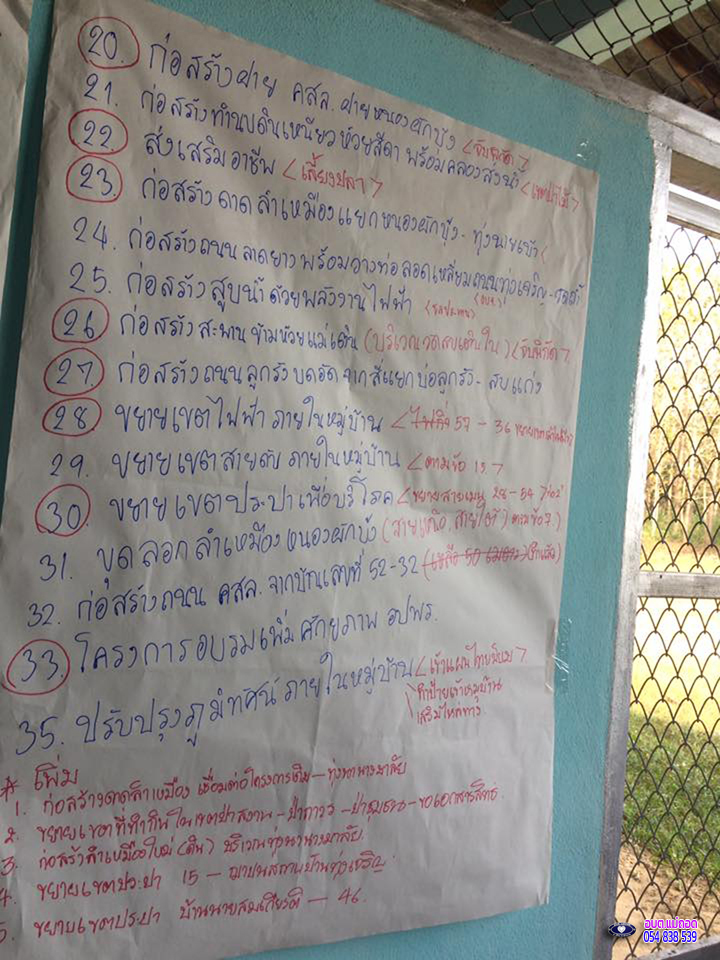 20. ก่อสร้างฝาย คสล. ฝายหนองผักบุ้ง <จับพิกัด>
21. ก่อสร้างทำนบดินเหนียวห้วยสีดา พร้อมคลองส่งน้ำ <เขตป่าไม้>
22. ส่งเสริมอาชีพ <เลี้ยงปลา>
23. ก่อสร้างดาดลำเหมืองแยกหนองผักบุ้ง - ทุ่งนายเบ้า
24. ก่อสร้างถนนลาดยางพร้อมวางท่อลอดเหลี่ยมถนนทุ่งเจริญ -
25. ก่อสร้างสูบน้ำด้วยพลังงานไฟฟ้า <ชลประทาน>
26. ก่อสร้างสะพานข้ามห้วยแม่เติน (บริเวณวัดสบเติน) <จับพิกัด>
27. ก่อสร้างถนนลูกรังบดอัดจากสี่แยกบ่อลูกรัง - สบแก่ง
28. ขยายเขตไฟฟ้า ภายในหมู่บ้าน <ไฟกิ่ง 57 - 36
29. ขยายเขตสายดับ ภายในหมู่บ้าน <ตามข้อ 15.>
30. ขยายเขตประปาเพื่อบริโภค <ขยายสายเมน 28 - 54>
31. ขุดลอกลำเหมืองหนองผักบุ้ง (สายเหนือ, สายใต้) ตามข้อ 7.)
32. ก่อสร้างถนน คสล. จากบ้านเลขที่ 52-32 (เหลือ 50 เมตร)
33. โครงการอบรมเพิ่มศักยภาพ อปพร.
35. ปรับปรุงภูมิทัศน์ ภายในหมู่บ้าน <เข้าแผนไทยนิยม>
ทำป้ายเข้าหมู่บ้าน
เสริมไหล่ทาง.
* เพิ่ม
1. ก่อสร้างดาดลำเหมือง เชื่อมต่อโครงการเดิม - ทุ่งนานางมาลัย
2. ขยายเขตที่ทำกินในเขตป่าสงวน - ป่าถาวร - ป่าชุมชน - ขอเอกสารสิทธิ์.
3. ก่อสร้างลำเหมืองใหม่ (ดิน) บริเวณทุ่งนานางมาลัย.
4. ขยายเขตประปา 15 - ฌาปนสถานบ้านทุ่งเจริญ.
5. ขยายเขตประปา บ้านนายสมเกียรติ - 46.
อบต.แม่ถอด
054 838 539